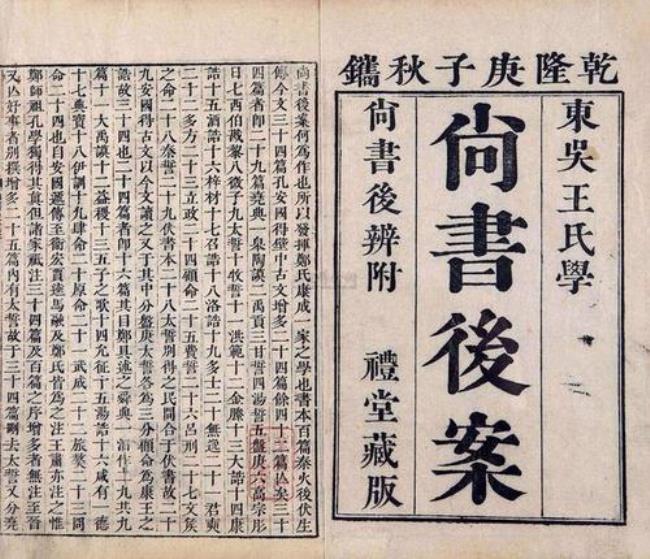 乾隆庚子秋鐫
東吳王氏學
尚書後案
尚書後辨附 禮堂藏版
尚書後案何爲作也所以發揮鄭氏康成一家之學也書本百篇秦火後伏生
傳今文三十四篇孔安國得壁中古文增多二十四篇餘四十二篇亾矣三十
四篇者即二十九篇堯典一臯陶謨二禹貢三甘誓四湯誓五盤庚六高宗肜
日七西伯戡黎八微子九太誓十牧誓十一洪範十二金縢十三大誥十四康
誥十五酒誥十六梓材十七召誥十八洛誥十九多士二十無逸二十一君奭
二十二多方二十三立政二十四顧命二十五費誓二十六呂刑二十七文侯
之命二十八秦誓二十九伏書本二十八太誓別得之民間合于伏書故二十
九安國得古文以今文讀之又于其中分盤庚太誓各爲三分顧命爲康王之
誥故三十四也二十四篇者即十六篇其目鄭具述之舜典一汨作二九共九
篇十一大禹謨十二益稷十三五子之歌十四允征十五湯誥十六咸有一德
十七典寶十八伊訓十九肆命二十原命二十一武成二十二旅獒二十三冏
命二十四也自安國遞傳至衞宏賈逵馬融及鄭氏皆爲之注王肅亦注之惟
鄭師祖孔學獨得其眞但諸家祗注三十四篇及百篇之序增多者無注至晉
又亾好事者別撰增多二十五篇内有太誓故于三十四篇刪去太誓又分堯